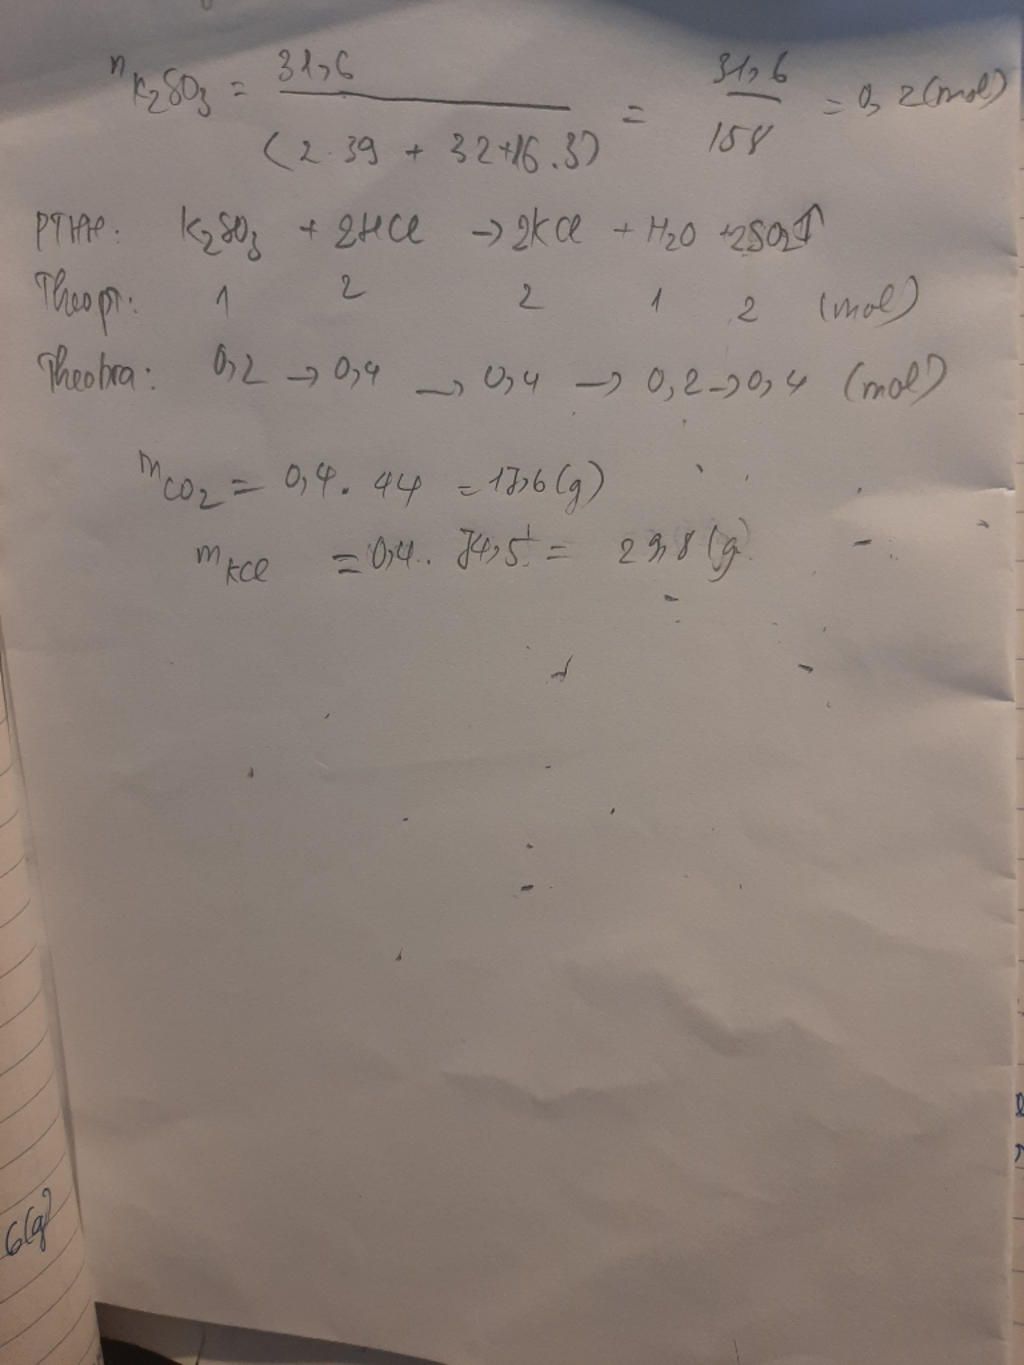 nK2SO3 = 31,6 / (2.39 + 32+16.3) = 31,6 / 158 = 0,2(mol)
PTHH: K2SO3 + 2HCl → 2KCl + H2O + 2SO2↑
Theopt: 1 2 2 1 2 (mol)
Theobra: 0,2 → 0,4 → 0,4 → 0,2 → 0,4 (mol)
mCO2 = 0,4. 44 = 17,6(g)
mKCl = 0,4. 74,5 = 29,8(g
6(g)